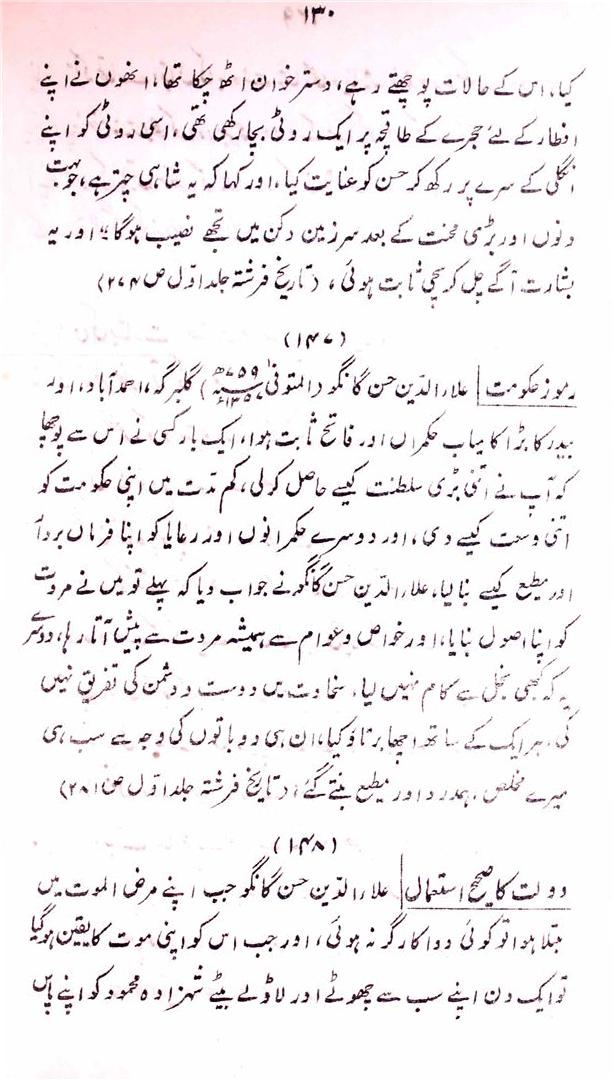 ۱۳۰
کیا، اس کے حالات پوچھتے رہے، دسترخوان اٹھ چکا تھا، انھوں نے اپنے
افطار کے لئے حجرے کے طاقچہ پر ایک روٹی بچا رکھی تھی، اسی روٹی کو اپنے
انگلی کے سرے پر رکھ کر حسن کو عنایت کیا، اور کہا کہ یہ شاہی چتر ہے، جو بہت
دنوں اور بڑی محنت کے بعد سرزمین دکن میں تجھے نصیب ہوگا؛ اور یہ
بشارت آگے چل کر سچی ثابت ہوئی، (تاریخ فرشتہ جلد اوّل ص ۲۷۴)
(۱۴۷)
رموز حکومت علاء الدّین حسن گانگو (المتوفی ۷۵۹ھ ۱۳۵۷ء) گلبرگہ، احمدآباد، اور
بیدر کا بڑا کامیاب حکمراں اور فاتح ثابت ہوا، ایک بار کسی نے اس سے پوچھا
کہ آپ نے اتنی بڑی سلطنت کیسے حاصل کر لی، کم مدّت میں اپنی حکومت کو
اتنی وسعت کیسے دی، اور دوسرے حکمرانوں اور رعایا کو اپنا فرماں بردار
اور مطیع کیسے بنا لیا، علاء الدّین حسن گانگو نے جواب دیا کہ پہلے تو میں نے مروت
کو اپنا اصول بنایا، اور خواص و عوام سے ہمیشہ مروت سے پیش آتا رہا، دوسرے
یہ کہ کبھی بخل سے کام نہیں لیا، سخاوت میں دوست و دشمن کی تفریق نہیں
کی، ہر ایک کے ساتھ اچھا برتاؤ کیا، ان ہی دو باتوں کی وجہ سے سب ہی
میرے مخلص، ہمدرد اور مطیع بنتے گئے، (تاریخ فرشتہ جلد اوّل ص ۲۸۱)
(۱۴۸)
دولت کا صحیح استعمال علاء الدّین حسن گانگو جب اپنے مرض الموت میں
مبتلا ہوا تو کوئی دوا کارگر نہ ہوئی، اور جب اس کو اپنی موت کا یقین ہوگیا
تو ایک دن اپنے سب سے چھوٹے اور لاڈلے بیٹے شہزادہ محمود کو اپنے پاس